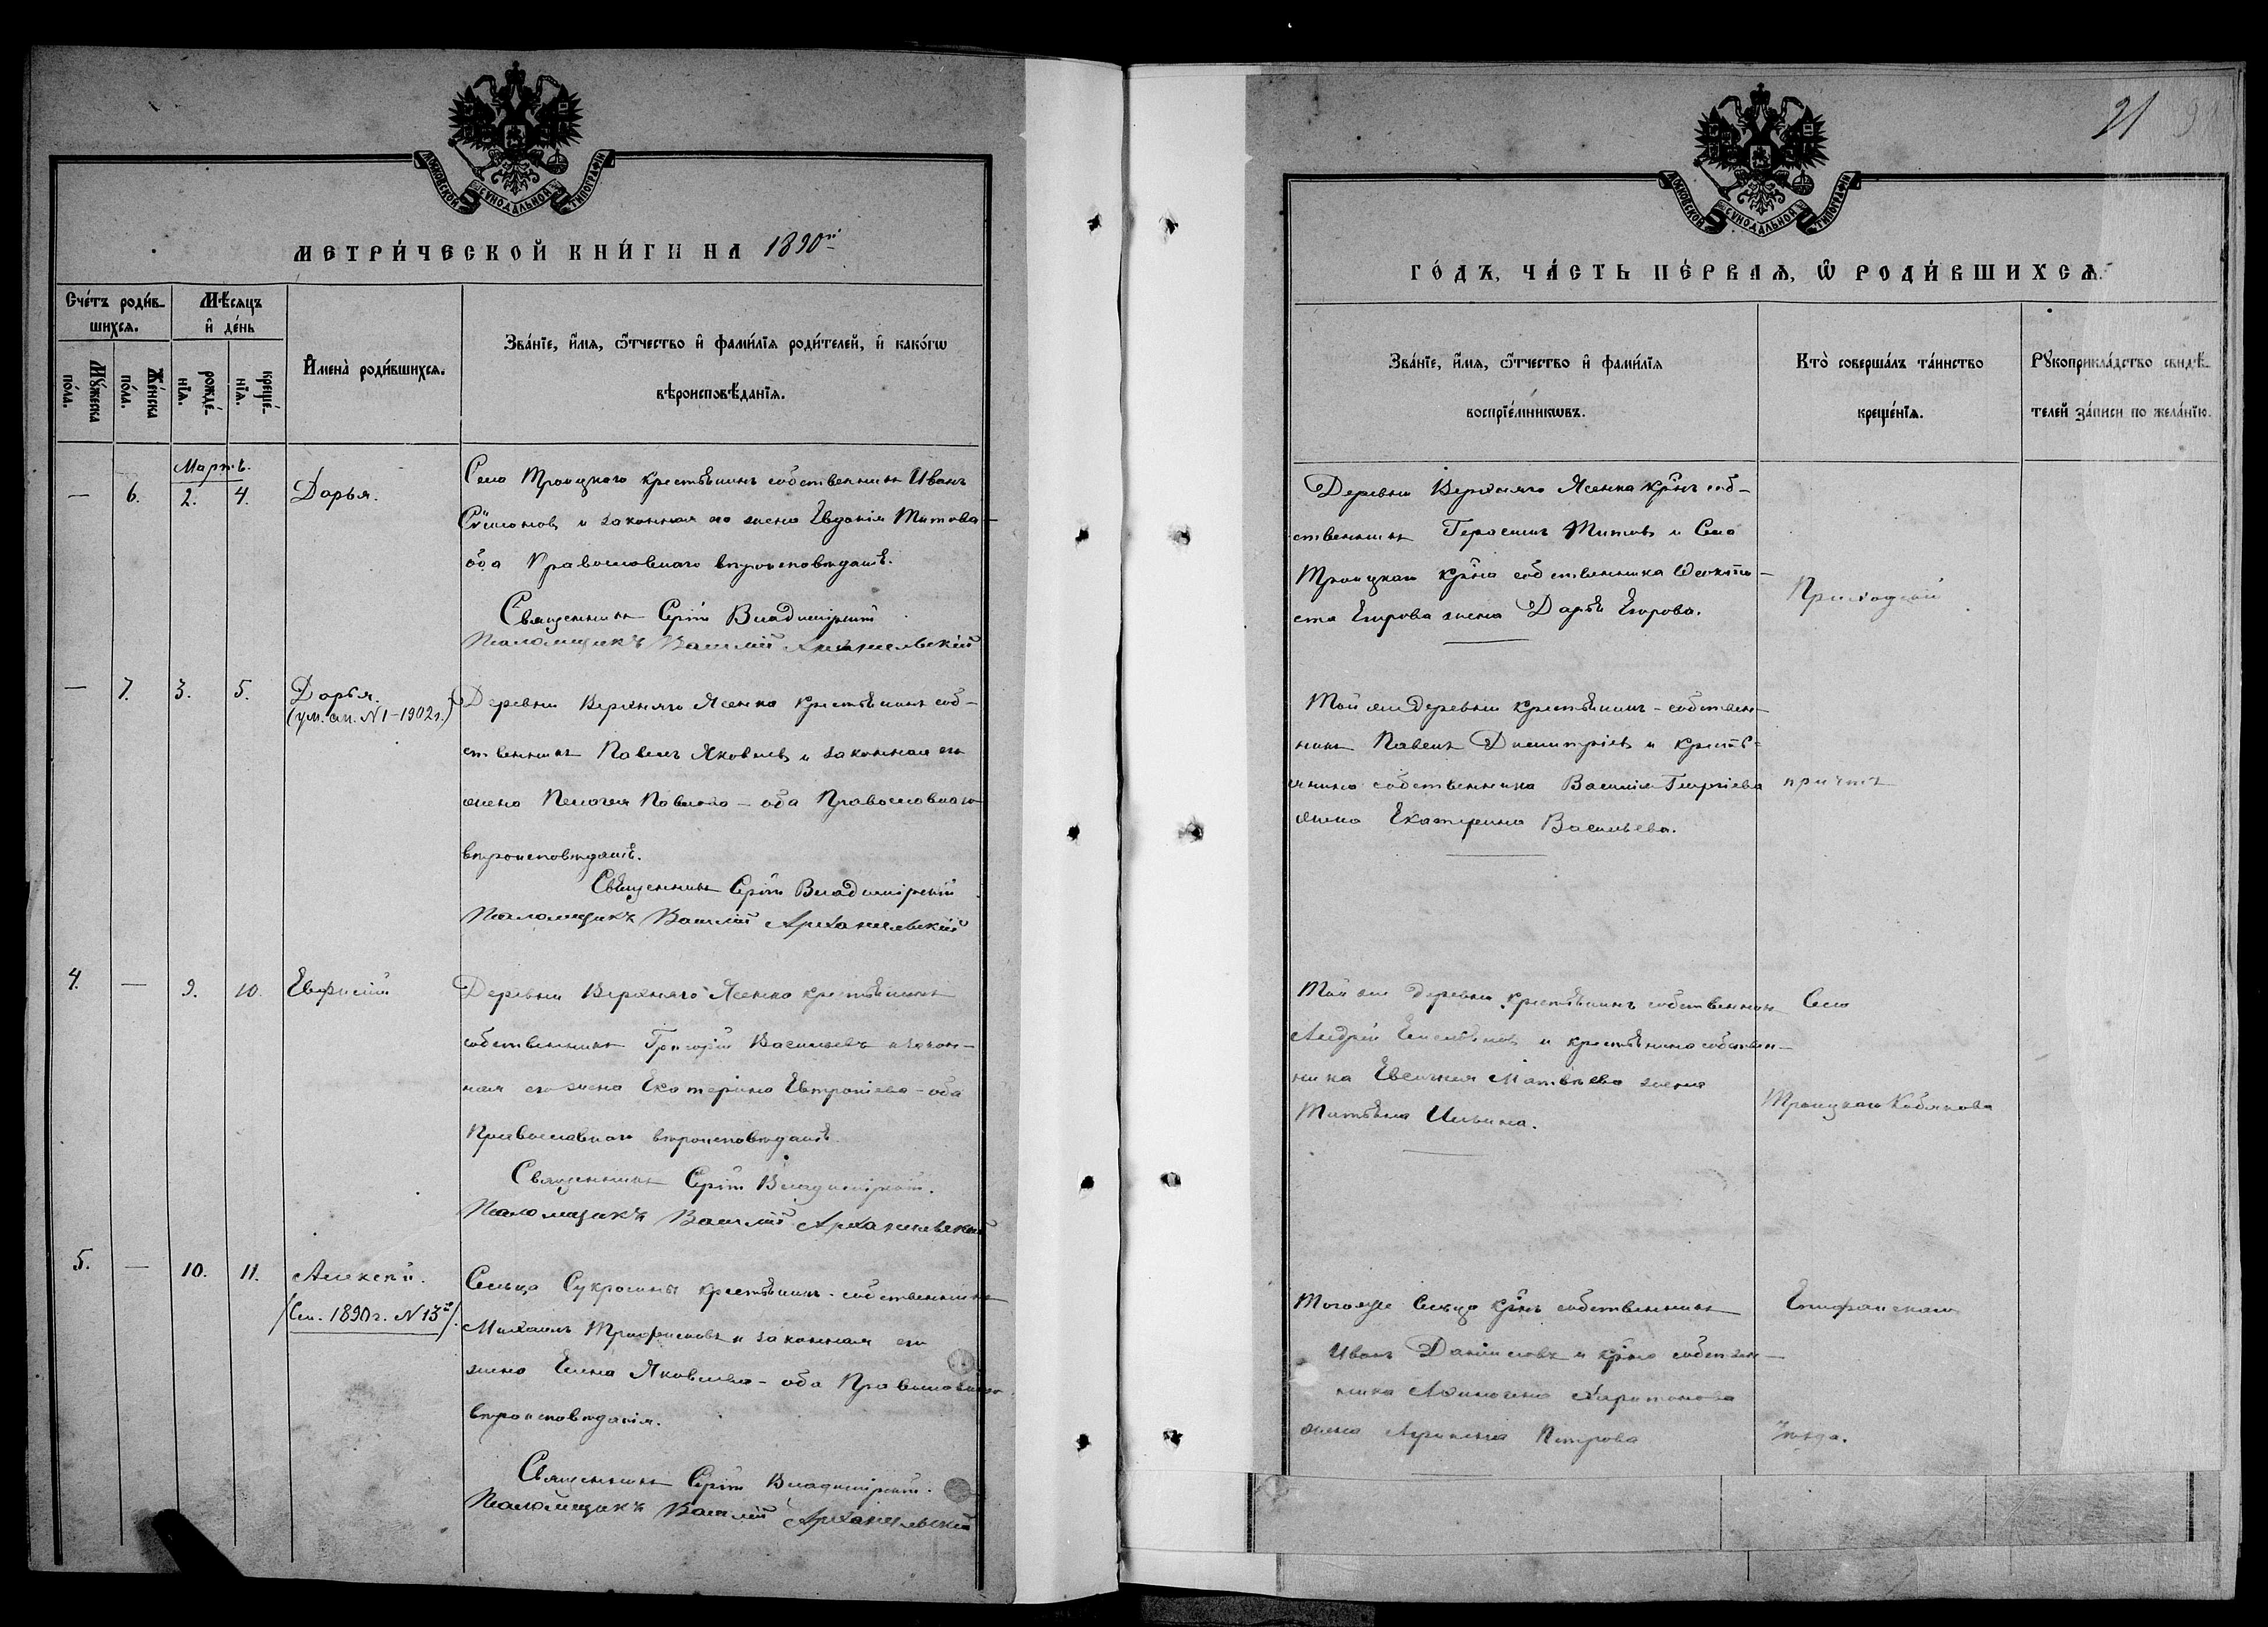 МОСКОВСКОЙ СѴНОДАЛЬНОЙ ТИПОГРАФІИ
МЕТРИ́ЧЕСКОЙ КНИ́ГИ НА 1890й
Сче́тъ роди́в-
шихсѧ.
Мѣ́сѧцъ
и҆ де́нь
Мꙋ́жеска
по́ла.
Же́нска
по́ла.
рожде́-
нїѧ.
креще́-
нїѧ.
И҆мена̀ роди́вшихсѧ.
Зва́нїе, и҆́мѧ, ѻ҆́тчество и҆ фами́лїѧ роди́телей, и҆ како́гѡ
вѣроисповѣ́данїѧ.
Мартъ.
— 6. 2. 4. Дарья.
Села Троицкаго крестьянинъ собственникъ Иванъ
Симоновъ и законная его жена Евдокія Титова –
оба Православнаго вѣроисповѣданія.
Священникъ Сергій Владимірскій
Псаломщикъ Василій Архангельскій
— 7. 3. 5. Дарья.
(ум. ап. N 1 – 1902 г.)
Деревни Верхняго Ясенка крестьянинъ соб-
ственникъ Павелъ Яковлевъ и законная его
жена Пелагея Павлова – оба Православнаго
вѣроисповѣданія.
Священникъ Сергій Владимірскій
Псаломщикъ Василій Архангельскій
4. — 9. 10. Евфимій
Деревни Верхняго Ясенка крестьянинъ
собственникъ Григорій Васильевъ и закон-
ная его жена Екатерина Евтропіева – оба
Православнаго вѣроисповѣданія.
Священникъ Сергій Владимірскій.
Псаломщикъ Василій Архангельскій
5. — 10. 11. Алексѣй.
/См. 1890 г. N 13й/.
Сельца Сукромны крестьянинъ-собственникъ
Михаилъ Трифоновъ и законная его
жена Елена Яковлева – оба Православнаго
вѣроисповѣданія.
Священникъ Сергій Владимірскій.
Псаломщикъ Василій Архангельскій
21
МОСКОВСКОЙ СѴНОДАЛЬНОЙ ТИПОГРАФІИ
ГО́ДЪ, ЧА́СТЬ ПЕ́РВАѦ, Ѡ҆ РОДИ́ВШИХСѦ.
Зва́нїе, и҆́мѧ, ѻ҆́тчество и҆ фами́лїѧ
воспрїе́мникѡвъ.
Кто̀ соверша́лъ та́инство
креще́нїѧ.
Рꙋкоприкла́дство свидѣ́-
телей за́писи по жела́нїю.
Деревни Верхняго Ясенка кр̃нъ соб-
ственникъ Герасимъ Титовъ и Села
Троицкаго кр̃на собственника
Егорова жена Дарья Егорова.
Приходскій
Той же деревни крестьянинъ-собствен-
никъ Павелъ Димитріевъ и кресть-
янина собственника Василія Георгіева
жена Екатерина Васильева.
причтъ
Той же деревни крестьянинъ собственникъ
Андрей Емельяновъ и крестьянина собствен-
ника Евсигнея Матвѣева жена
Татьяна Ильина.
Села
Троицкаго Кобякова
Того же Сельца кр̃нъ собственникъ
Иванъ Даниловъ и кр̃на собствен-
ника Харитонова
жена Петрова
Епифанскаго
Уѣзда.